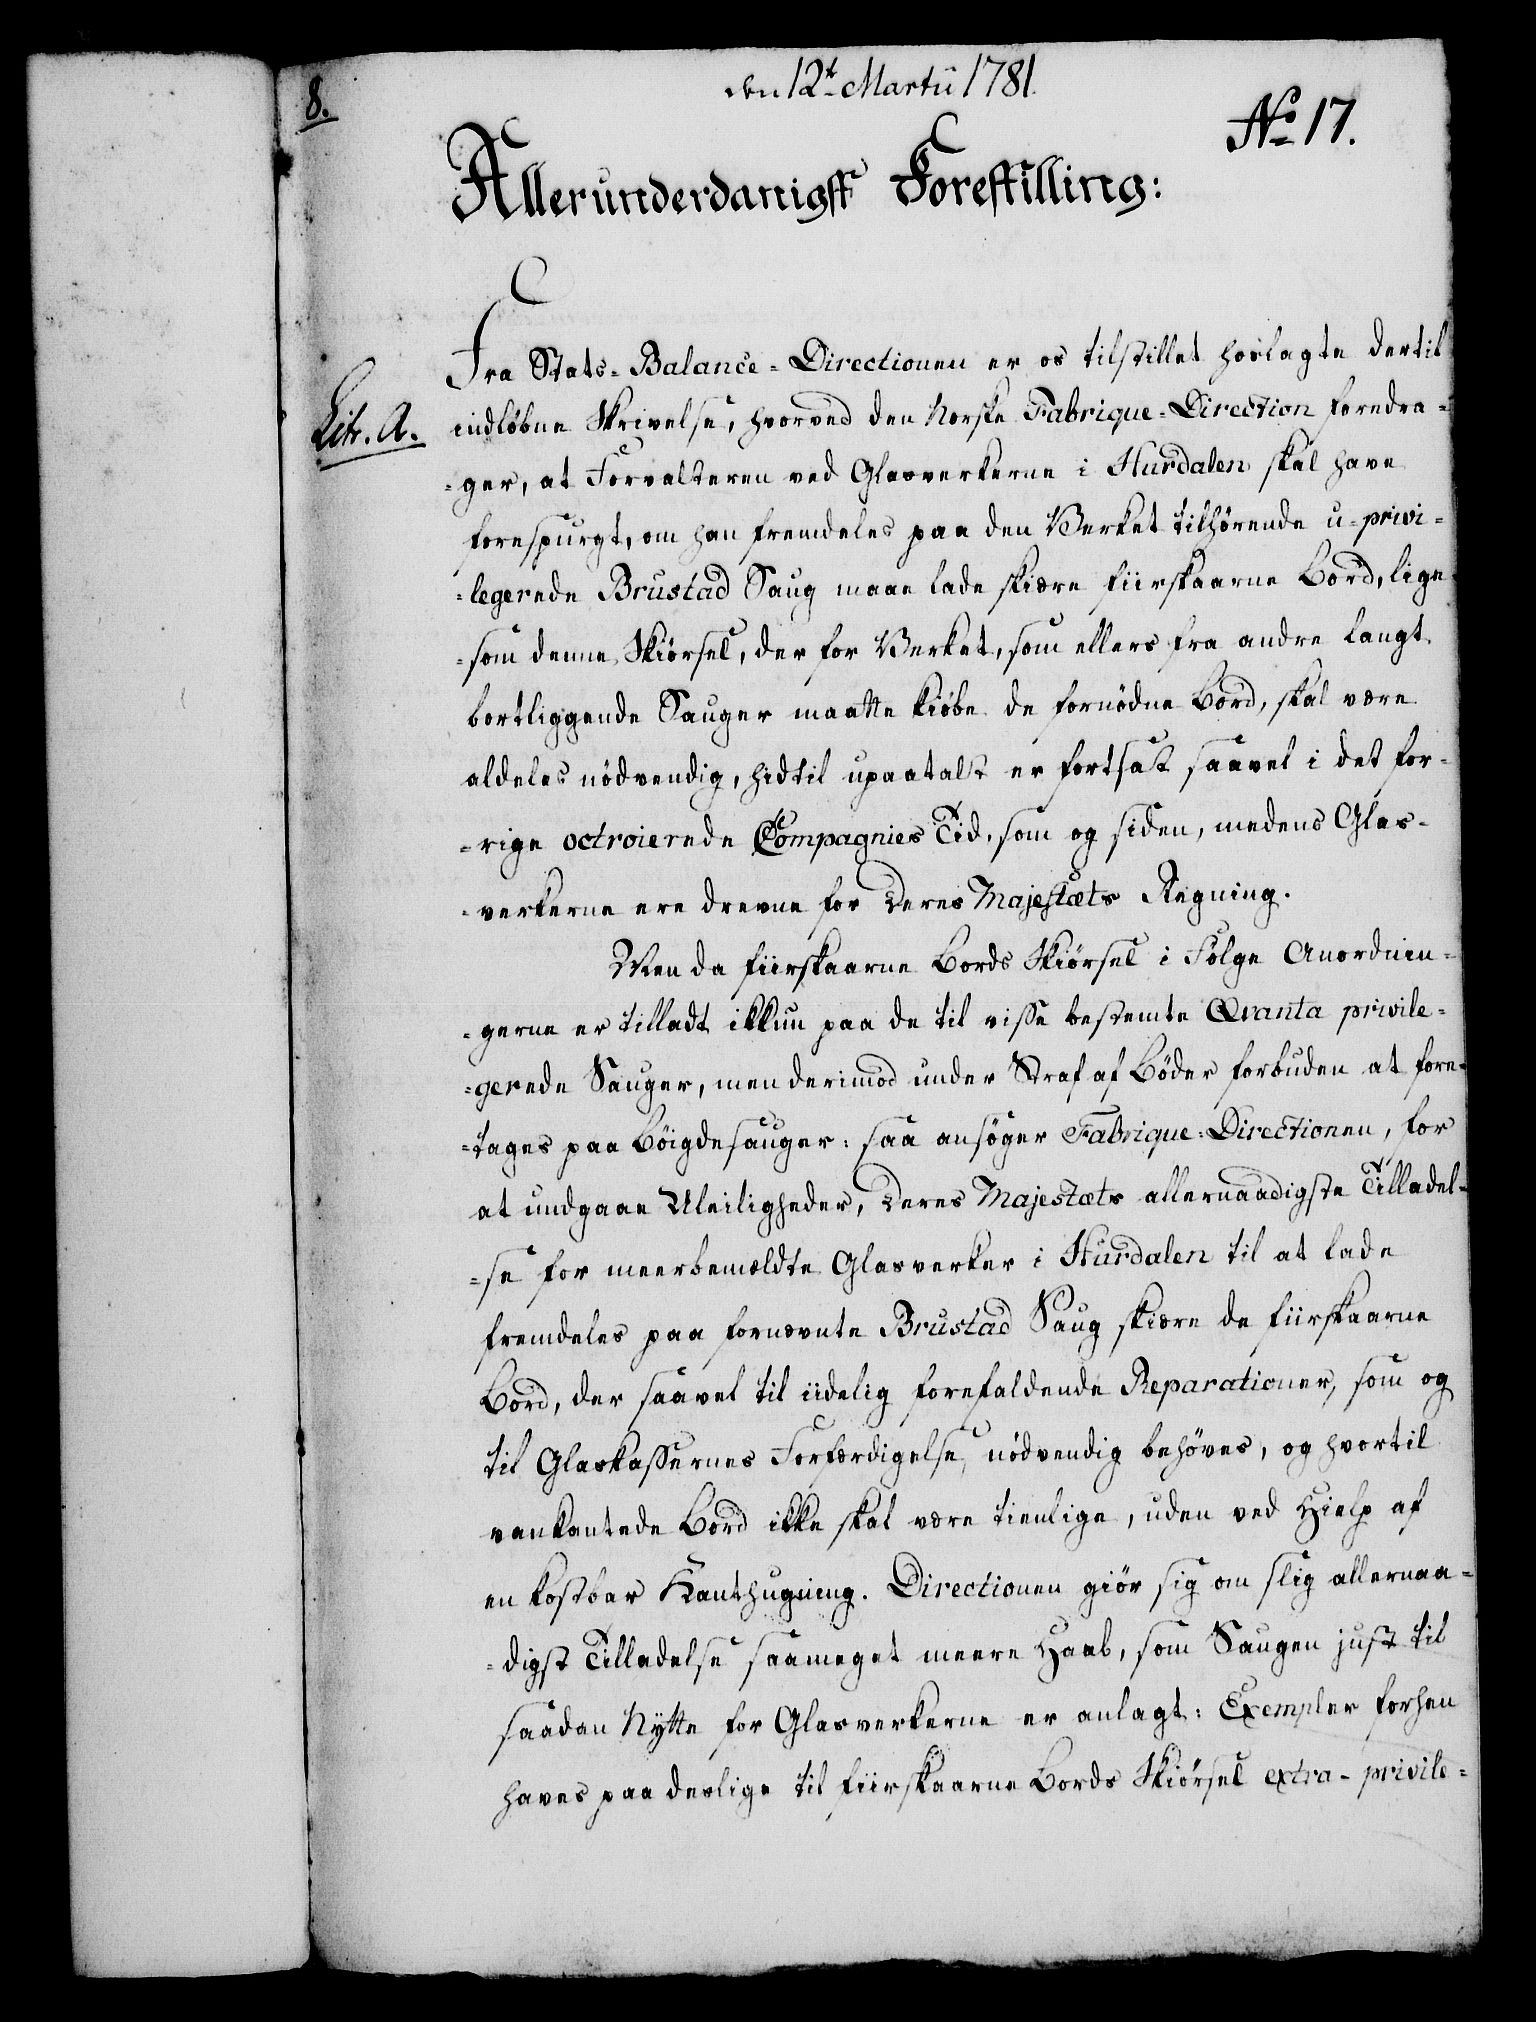 den 12t Martii 1781.
8.
No 17.
Allerunderdanigst Forestilling:
Fra Stats-Balance-Directionen er os tilstillet hoslagte dertil
Litr. A.
indløbne Skrivelse, hvorved den Norske Fabrique-Direction foredra-
-ger, at Forvalteren ved Glasverkerne i Hurdalen skal have
forespurgt, om han fremdeles paa den Verket tilhørende u-privi-
-legerede Brustad Saug maae lade skiære fiirskaarne Bord, lige-
-som denne Skiørsel, der for Verket, som ellers fra andre langt
bortliggende Sauger maatte kiøbe de fornødne Bord, skal være
aldeles nødvendig, hidtil upaatalt er fortsat saavel i det for-
-rige octroierede Compagnies Tid, som og siden, medens Glas-
-verkerne ere drevne for Deres Majestæts Regning.
Men da fiirskaarne Bords Skiørsel i Følge Anordnin-
-gerne er tilladt ikkun paa de til visse bestemte Qvanta privile-
-gerede Sauger, men derimod under Straf af Bøder forbuden at fore-
-tages paa Böigdesauger: saa ansøger Fabrique-Directionen, for
at undgaae Uleiligheder, Deres Majestæts allernaadigste Tilladel-
-se for meerbemældte Glasverker i Hurdalen til at lade
fremdeles paa fornævnte Brustad Saug skiære de fiirskaarne
Bord, der saavel til iidelig forefaldende Reparationer, som og
til Glaskassernes Forfærdigelse, nödvendig behöves, og hvortil
vankantede Bord ikke skal være tienlige, uden ved Hielp af
en kostbar Kanthugning. Directionen giör sig om slig allernaa-
-digst Tilladelse saameget meere Haab, som Saugen just til
saadan Nytte for Glasverkerne er anlagt: Exempler forhen
haves paa deslige til fiirskaarne Bords Skiørsel extra-privile-